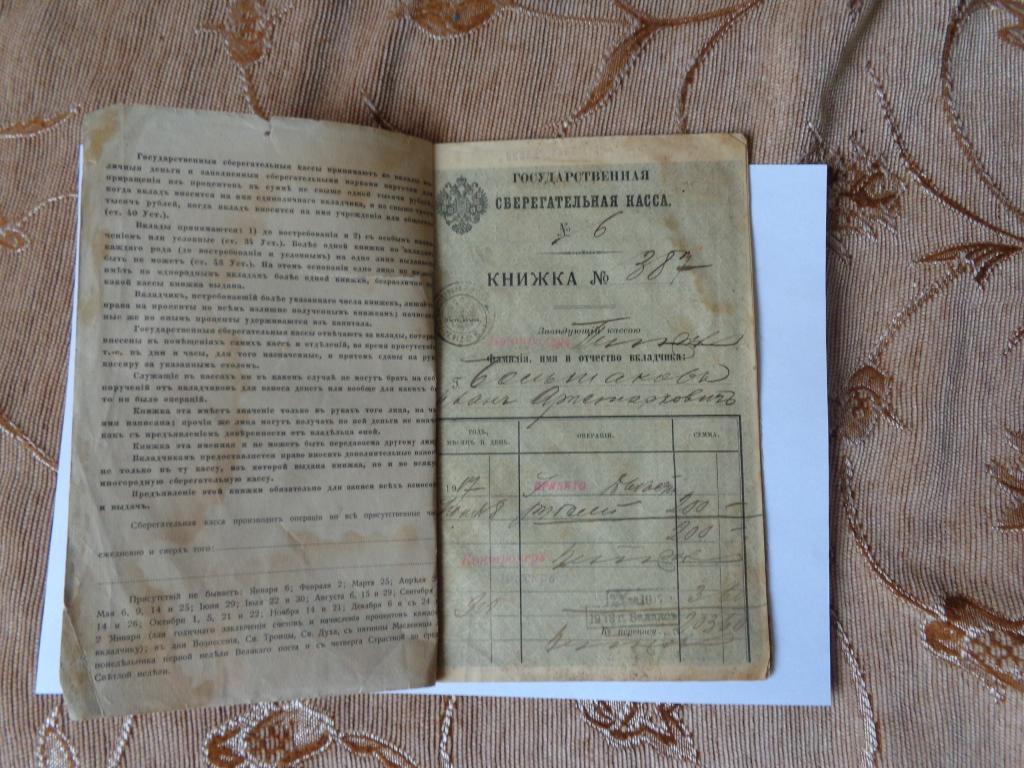 Государственныя сберегательныя кассы принимаютъ во вклады на-
личныя деньги и заполненныя сберегательными марками карточки для
приращенія изъ процентовъ въ суммѣ не свыше одной тысячи рублей,
когда вкладъ вносится на имя единоличнаго вкладчика, и не свыше
тысячъ рублей, когда вкладъ вносится на имя учрежденія или общества
(ст. 40 Уст.).
Вклады принимаются: 1) до востребованія и 2) съ особымъ
ченіемъ или условные (ст. 34 Уст.). Болѣе одной книжки по вкладамъ
каждаго рода (до востребованія и условнымъ) на одно лицо выдаваемо
быть не можетъ (ст. 43 Уст.). На этомъ основаніи одно лицо не можетъ
имѣть по однороднымъ вкладамъ болѣе одной книжки, безразлично
какой кассы книжка выдана.
Вкладчикъ, истребовавшій болѣе указаннаго числа книжекъ,
права на проценты по всѣмъ излишне полученнымъ книжкамъ;
ныя же по нимъ проценты удерживаются изъ капитала.
Государственныя сберегательныя кассы отвѣчаютъ за вклады,
внесены въ помѣщеніяхъ самихъ кассъ и отдѣленій, во время
т.-е. въ дни и часы, для того назначенные, и притомъ сданы на руки
кассиру за указаннымъ столомъ.
Служащіе въ кассахъ ни въ какомъ случаѣ не могутъ брать на себя
порученій отъ вкладчиковъ для взноса денегъ или вообще для какихъ бы
то ни было операцій.
Книжка эта имѣетъ значеніе только въ рукахъ того лица, на чье
имя написана; прочія же лица могутъ получать по ней деньги не иначе
какъ съ предъявленіемъ довѣренности отъ владѣльца оной.
Книжка эта именная и не можетъ быть передаваема другому лицу.
Вкладчикамъ предоставляется право вносить дополнительные взносы
не только въ ту кассу, изъ которой выдана книжка, но и во всякую
иногороднюю сберегательную кассу.
Предъявленіе этой книжки обязательно для записи всѣхъ взносовъ
и выдачъ.
Сберегательная касса производитъ операціи во всѣ присутственные
ежедневно и сверхъ того:
Присутствій не бываетъ: Января 6; Февраля 2; Марта 25; Апрѣля
Мая 6, 9, 14 и 25; Іюня 29; Іюля 22 и 30; Августа 6, 15 и 29; Сентября
14 и 26; Октября 1, 5, 21 и 22; Ноября 14 и 21; Декабря 6 и съ 24
2 Января (для годичнаго заключенія счетовъ и начисленія процентовъ каждому
вкладчику); въ дни Вознесенія, Св. Троицы, Св. Духа, съ пятницы Масленицы
понедѣльника первой недѣли Великаго поста и съ четверга Страстной до
Свѣтлой недѣли.
ГОСУДАРСТВЕННАЯ
СБЕРЕГАТЕЛЬНАЯ КАССА.
№ 6
КНИЖКА № 387
Завѣдующій кассою
Фамилія, имя и отчество вкладчика:
Большаковъ
Иванъ Аристарховичъ
ГОДЪ, МѢСЯЦЪ И ДЕНЬ. ОПЕРАЦІИ. СУММА.
1917 Принято двѣсти
рублей 200 –
200 –
Контролеръ
Кассиръ
1918 г.
Къ переносу